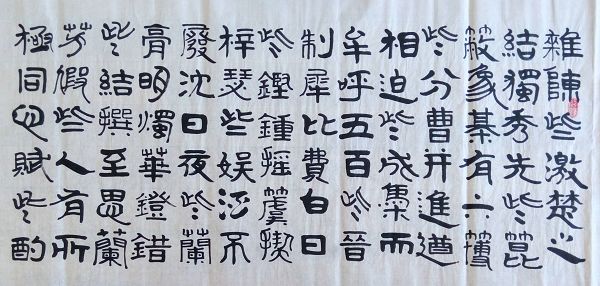 雜陳些激楚之
結獨秀先些箟
蔽象棊有六簙
些分曹并進遒
相迫些成梟而
牟呼五百些晉
制犀比費白日
些鏗鍾搖簴揳
梓瑟些娛酒不
廢沈日夜些蘭
膏明燭華鐙錯
些結撰至思蘭
芳假些人有所
極同心賦些酎